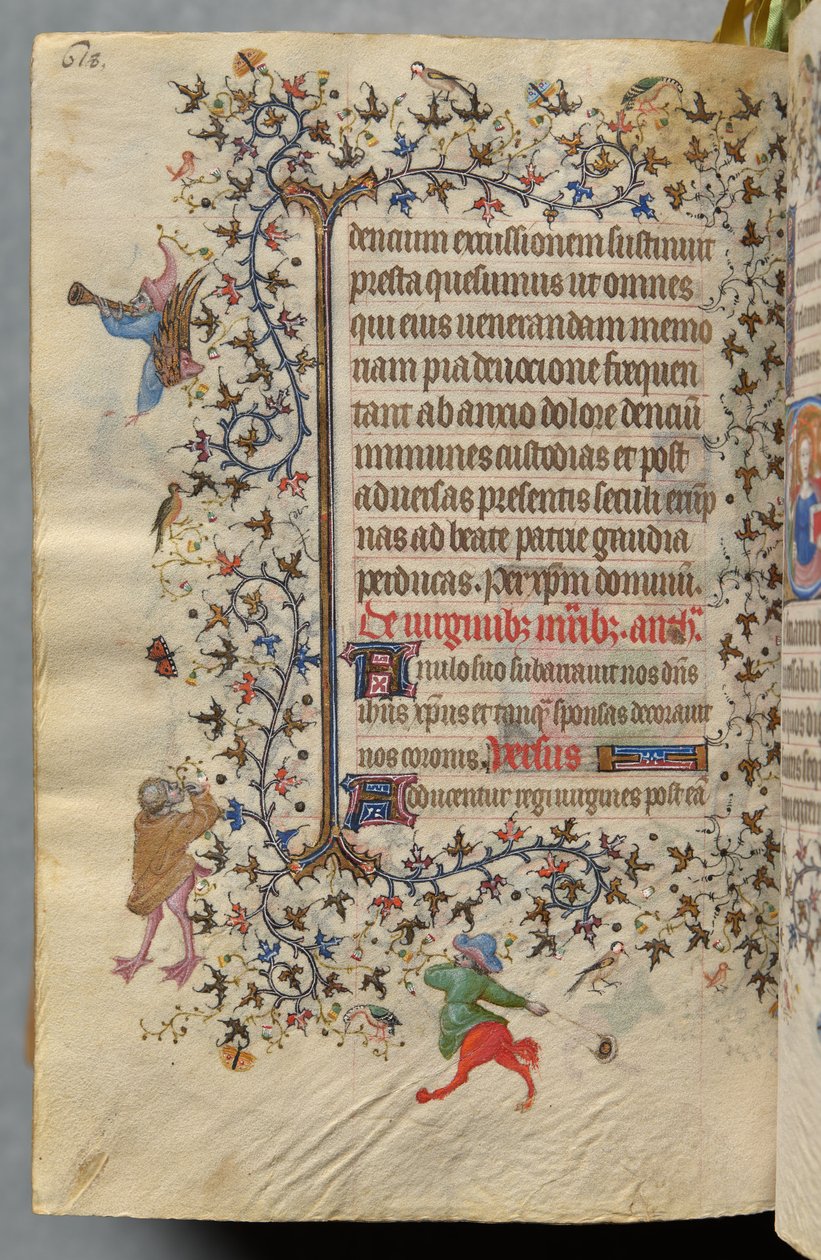 678.
dencium excussionem sustinuit
presta quesumus ut omnes
qui eius uenerandam memo
riam pia deuocione frequen
tant ab anxio dolore denciū
immunes custodias et post
aduersas presentis seculi erūp
nas ad beate patrie gaudia
perducas. Per xp̄m dominū.
De uirginibꝫ mr̄ibꝫ. anth̄.
Anulo suo subarrauit nos dn̄s
ihūs xp̄us et tanqͣ sponsas decorauit
nos coronis. Versus
Adducentur regi uirgines post eā